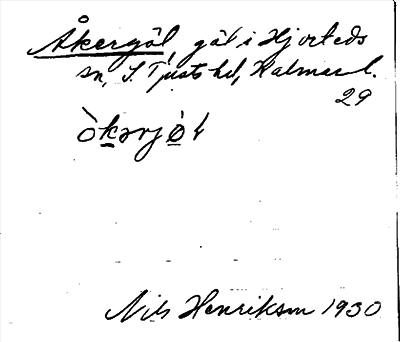 Åkergöl, göl i Hjorteds
sn, S. Tjusts hd, Kalmar l.
29
Nils Henrikson 1930